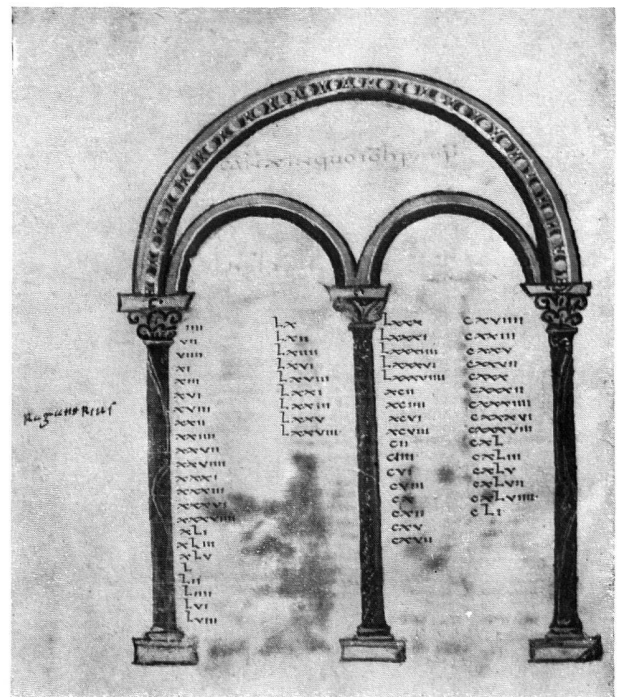 iiii
vii
viiii
xi
xiii
xvi
xviii
xxii
xxiiii
xxvii
xxviiii
xxxi
xxxiii
xxxvi
xxxviiii
xLi
xLiii
xLv
L
Lii
Liiii
Lvi
Lviii
Lx
Lxii
Lxiiii
Lxvi
Lxviii
Lxxi
Lxxiii
Lxxv
Lxxviii
Lxxx
Lxxxi
Lxxxiiii
Lxxxvi
Lxxxviiii
xcii
xciiii
xcvi
xcviii
cii
ciiii
cvi
cviii
cx
cxii
cxv
cxvii
cxviiii
cxxii
cxxv
cxxvii
cxxx
cxxxii
cxxxiiii
cxxxvi
cxxxviiii
cxL
cxLiii
cxLv
cxLvii
cxLviiii
cLi